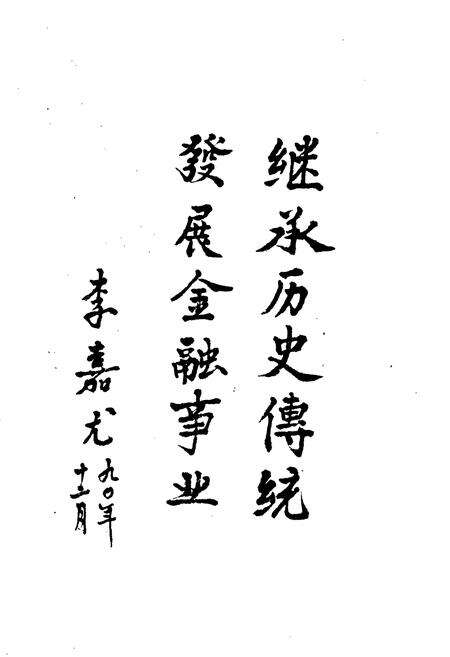 继承历史傳統
發展金融事业
李嘉尤
九〇年
十二月